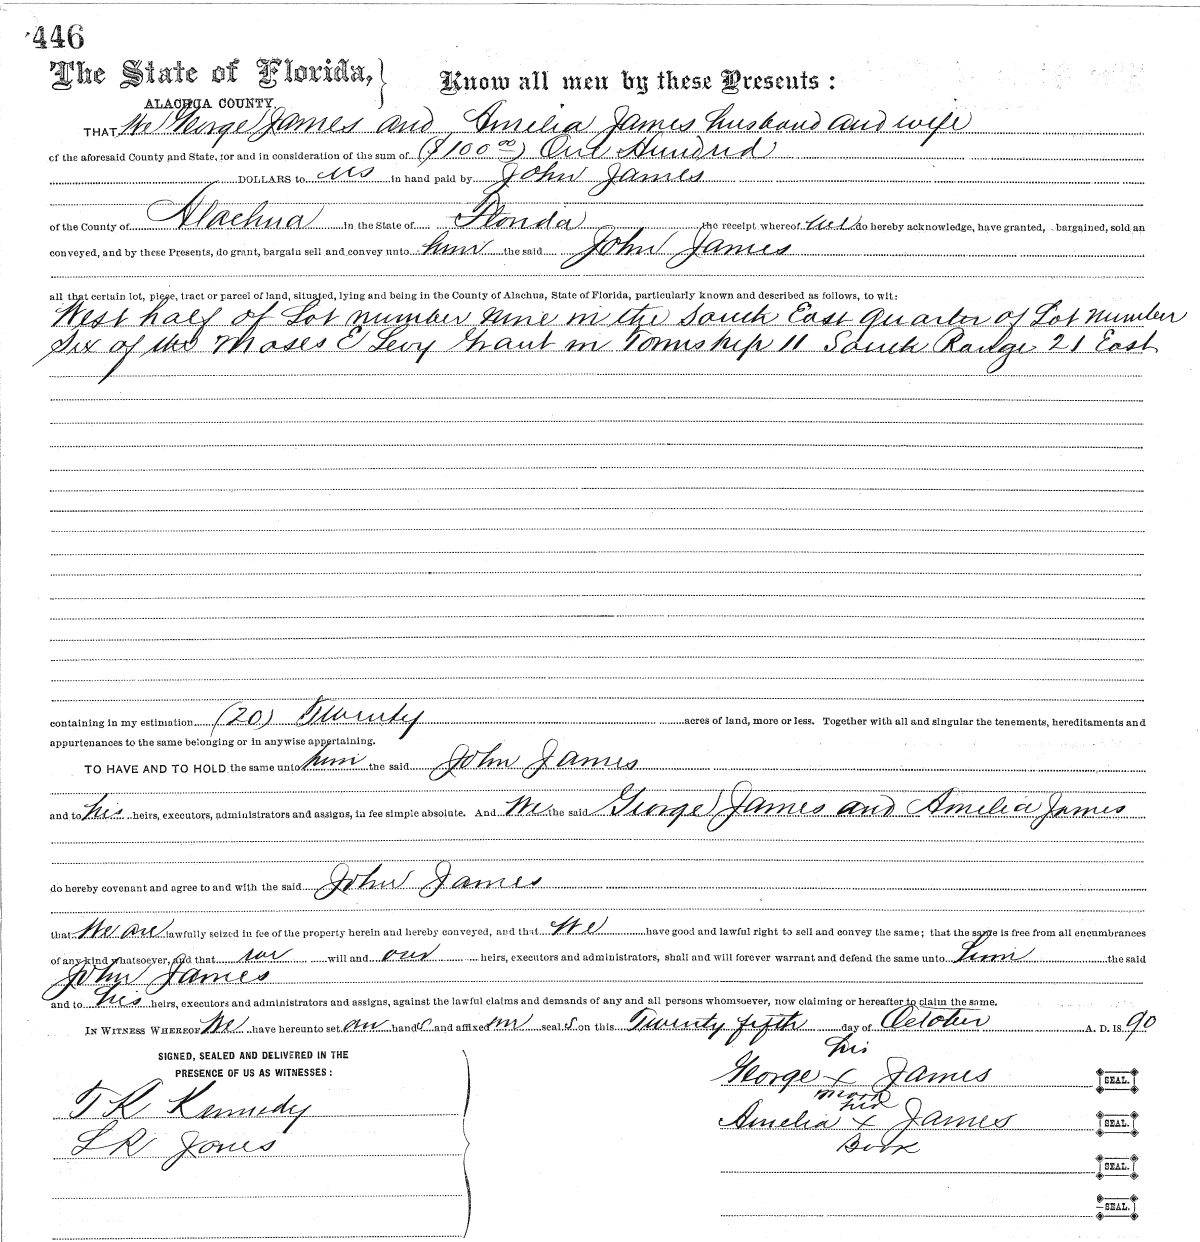 446
The State of Florida, } Know all men by these Presents :
ALACHUA COUNTY
THAT We George James and Amelia James husband and wife
of the aforesaid County and State, for and in consideration of the sum of ($100 00) One Hundred
DOLLARS to us in hand paid by John James
of the County of Alachua in the State of Florida the receipt whereof we do hereby acknowledge, have granted, bargained, sold an
conveyed, and by these Presents, do grant, bargain sell and convey unto him the said John James
all that certain lot, piese, tract or parcel of land, situated, lying and being in the County of Alachua, State of Florida, particularly known and described as follows, to wit:
West half of Lot number nine in the South East quarter of Lot Number
Six of the Moses E Levy Grant in Township 11 South Range 21 East
containing in my estimation (20) Twenty acres of land, more or less. Together with all and singular the tenements, hereditaments and
appurtenances to the same belonging or in anywise appertaining.
TO HAVE AND TO HOLD the same unto him the said John James
and to his heirs, executors, administrators and assigns, in fee simple absolute. And We the said George James and Amelia James
do hereby covenant and agree to and with the said John James
that We are lawfully seized in fee of the property herein and hereby conveyed, and that We have good and lawful right to sell and convey the same; that the same is free from all encumbrances
of any kind whatsoever, and that we will and our heirs, executors and administrators, shall and will forever warrant and defend the same unto him the said
John James
and to his heirs, executors and administrators and assigns, against the lawful claims and demands of any and all persons whomsoever, now claiming or hereafter to claim the same.
IN WITNESS WHEREOF We have hereunto set our hands and affixed our seals on this Twenty fifth day of October A. D. 18 90
SIGNED, SEALED AND DELIVERED IN THE
PRESENCE OF US AS WITNESSES :
T R Kennedy
L R Jones
his
George x James SEAL.
mark
her
Amelia x James SEAL.
SEAL.
SEAL.